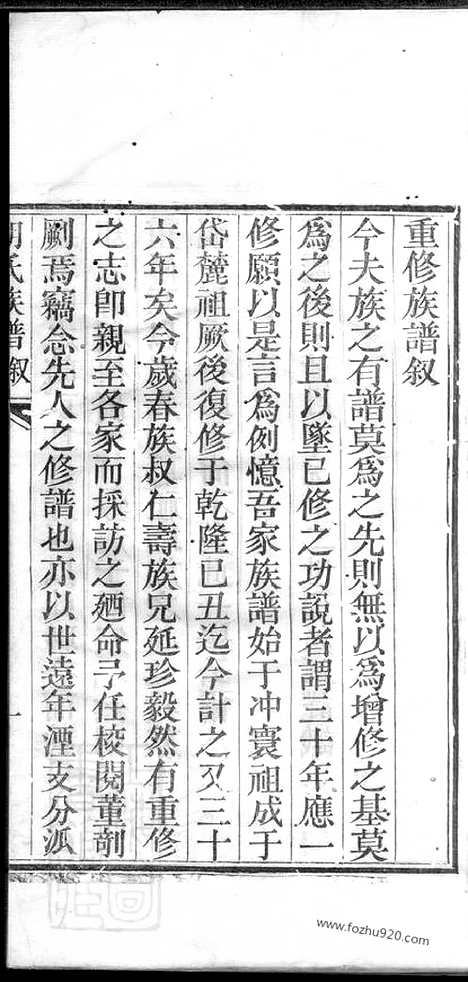 重修族譜叙
今夫族之有譜莫爲之先則無以爲增修之基莫
爲之後則且以墜已修之功說者謂三十年應一
修願以是言爲例憶吾家族譜始于冲寰祖成于
岱麓祖厥後復修于乾隆已丑迄今計之又三十
六年矣今歲春族叔仁壽族兄延珍毅然有重修
之志卽親至各家而採訪之廼命予任校閱董剞
劂焉竊念先人之修譜也亦以世遠年湮支分派
氏族譜叙
一
www.fozhu920.com